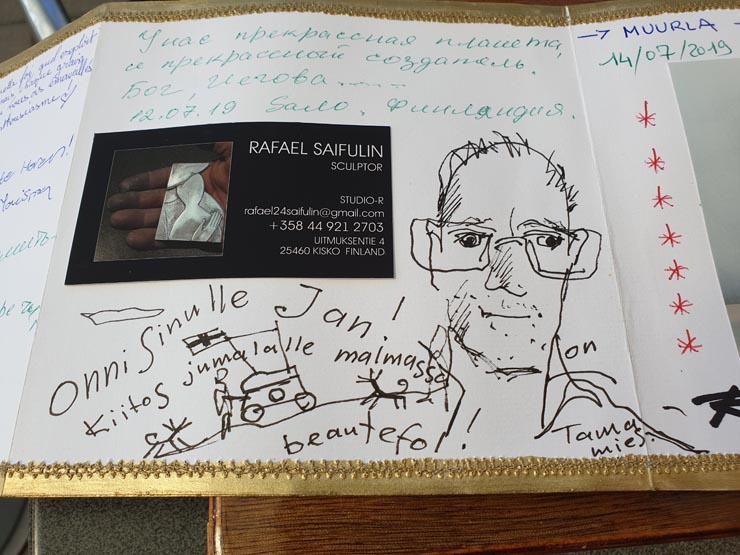 У нас прекрассная планета,
и прекрассный создатель.
Бог, Иегова......
12.07.19 Sало. Финляндия.
RAFAEL SAIFULIN
SCULPTOR
STUDIO-R
rafael24saifulin@gmail.com
+358 44 921 2703
UITMUKSENTIE 4
25460 KISKO FINLAND
Onni Sinulle Jan!
Kiitos jumalalle maimassa
beautefol!
on
Tama
mies.
→ MUURLA
14/07/2019